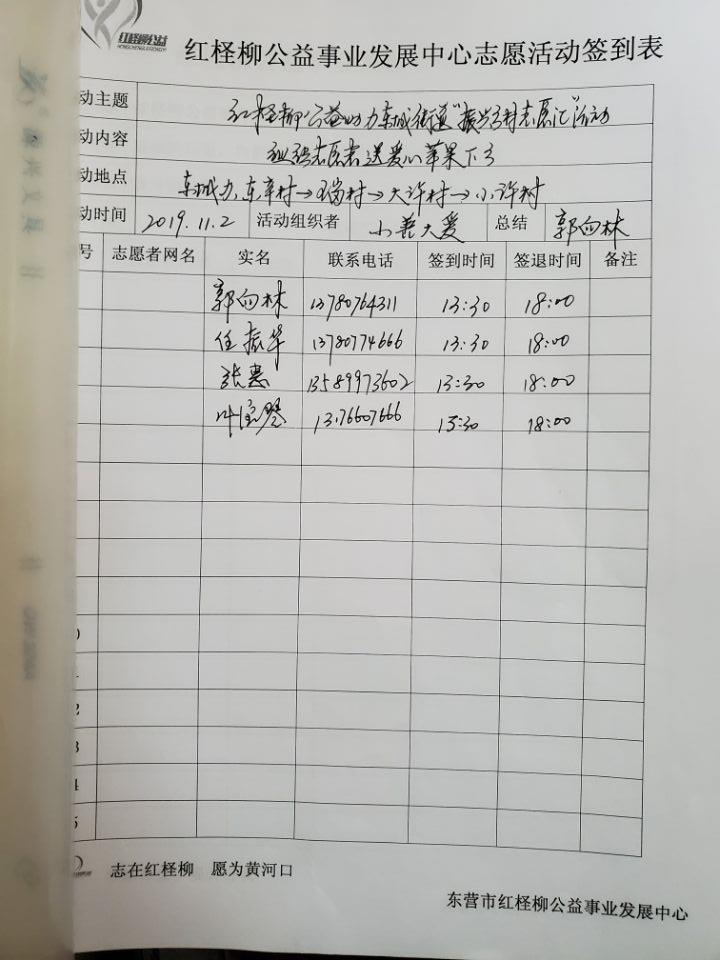 红柽柳公益
红柽柳公益事业发展中心志愿活动签到表
动主题 红柽柳公益助力东城街道"振兴乡村志愿汇"活动
动内容 志愿者送爱心苹果下乡
动地点 东城办东辛村→瑞村→大许村→小许村
动时间 2019.11.2 活动组织者 小善大爱 总结 郭向林
号 志愿者网名 实名 联系电话 签到时间 签退时间 备注
郭向林 13780764311 13:30 18:00
任振华 13780774666 13:30 18:00
张惠 13589973602 13:30 18:00
叶宝琴 13:30 18:00
志在红柽柳 愿为黄河口
东营市红柽柳公益事业发展中心